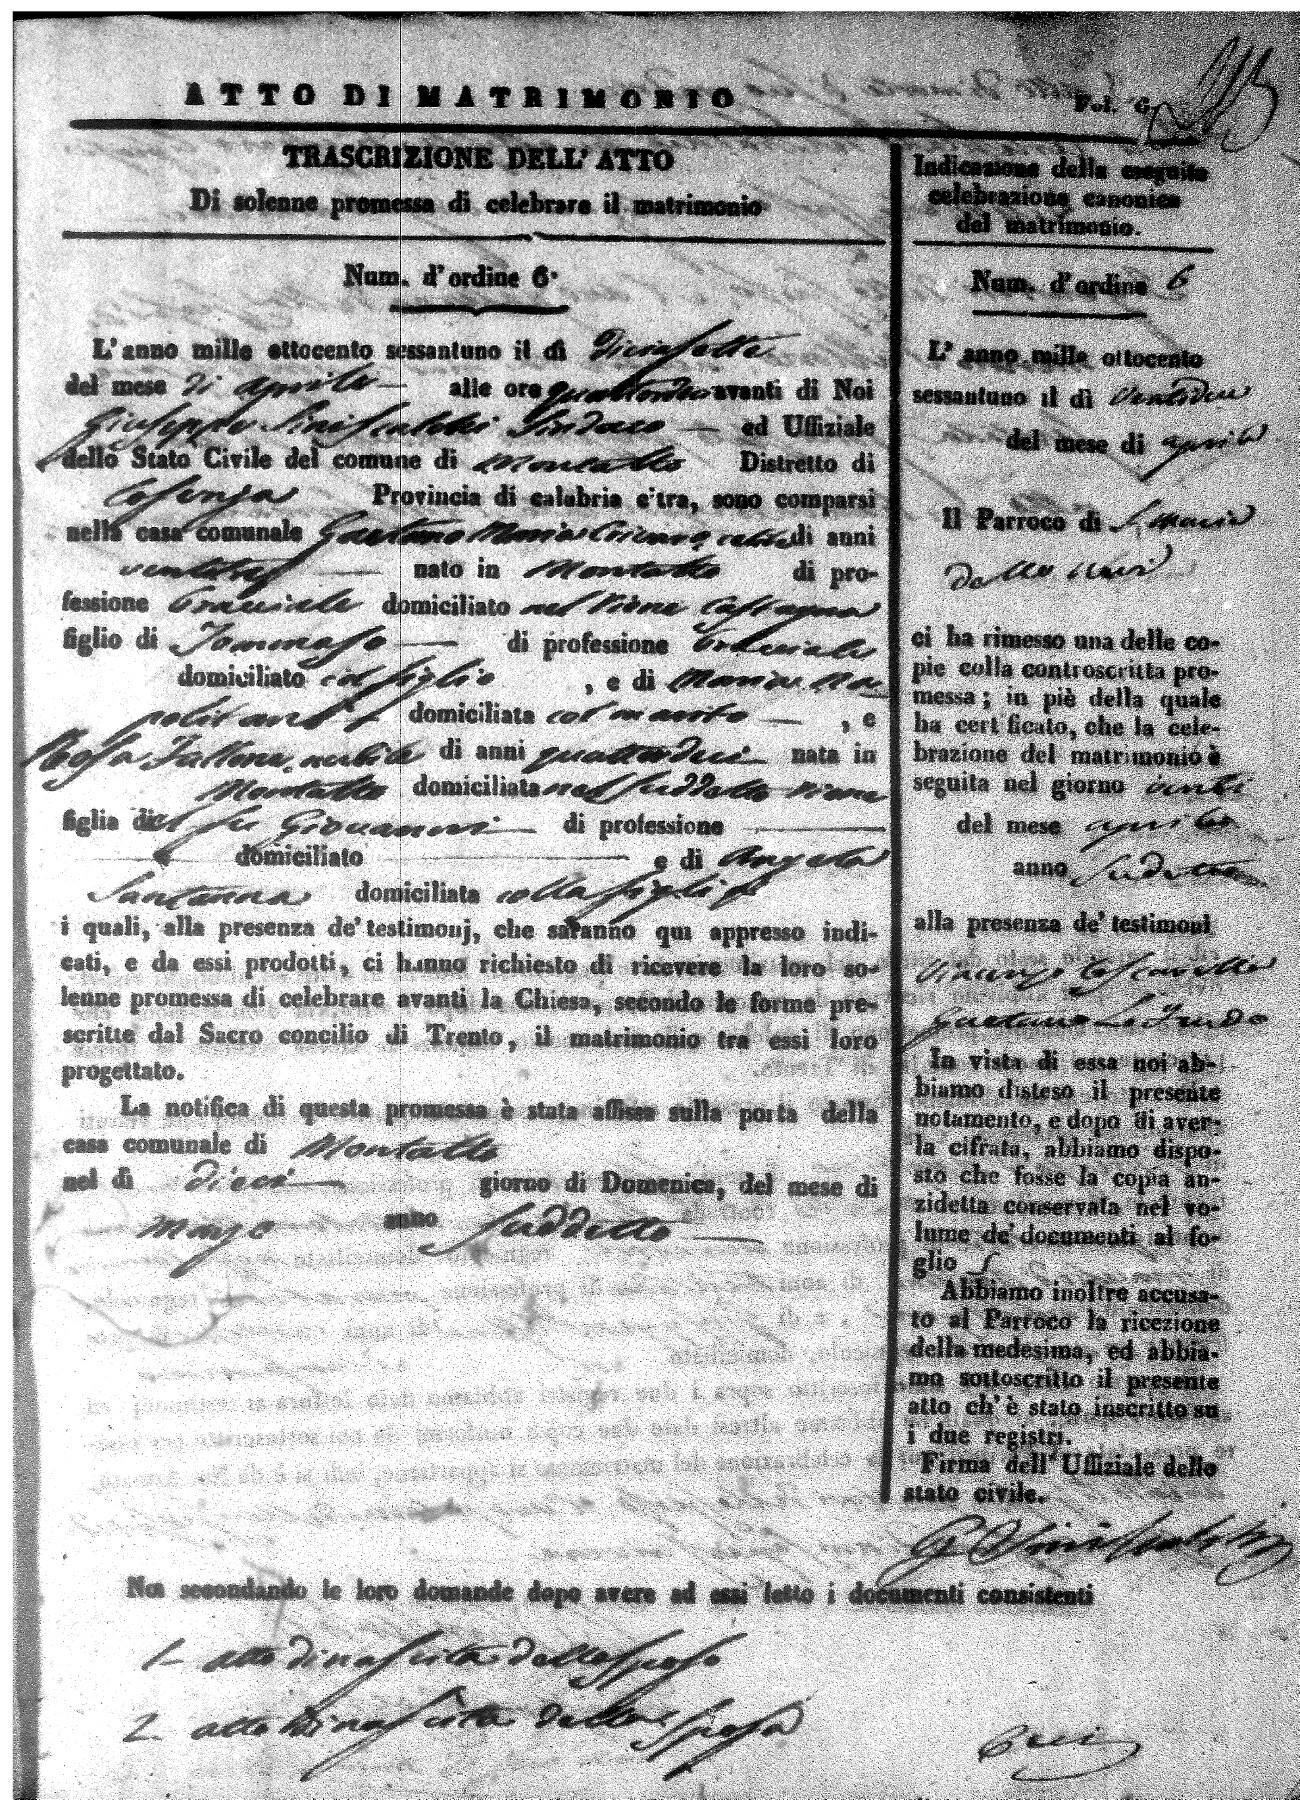 ATTO DI MATRIMONIO
Fol. 6.
TRASCRIZIONE DELL' ATTO
Di solenne promessa di celebrare il matrimonio
Num. d'ordine 6.
L' anno mille ottocento sessantuno il dì diciasette
del mese di aprile alle ore quattordici avanti di Noi
Giuseppe Siniscalchi Sindaco ed Uffiziale
dello Stato Civile del comune di Montalto Distretto di
Cosenza Provincia di calabria citra, sono comparsi
nella casa comunale Gaetano Maria celibe di anni
ventitre nato in Montalto di pro-
fessione bracciale domiciliato nel rione Castagna
figlio di Tommaso di professione bracciale
domiciliato col figlio , e di Maria Na-
politano domiciliata col marito , e
Rosa Fallone nubile di anni quattordici nata in
Montalto domiciliata nel suddetto rione
figlia del fu Giovanni di professione
domiciliato e di Angela
Santanna domiciliata colla figlia
i quali, alla presenza de' testimonj, che saranno qui appresso indi-
cati, e da essi prodotti, ci hanno richiesto di ricevere la loro so-
lenne promessa di celebrare avanti la Chiesa, secondo le forme pre-
scritte dal Sacro concilio di Trento, il matrimonio tra essi loro
progettato.
La notifica di questa promessa è stata affissa sulla porta della
casa comunale di Montalto
nel dì dieci giorno di Domenica, del mese di
Marzo anno suddetto
Indicazione della eseguita
celebrazione canonica
del matrimonio.
Num. d' ordine 6
L' anno mille ottocento
sessantuno il dì ventidue
del mese di aprile
Il Parroco di S. Maria
della
ci ha rimesso una delle co-
pie colla controscritta pro-
messa; in piè della quale
ha certificato, che la cele-
brazione del matrimonio è
seguita nel giorno venti
del mese aprile
anno sudetto
alla presenza de' testimoni
Vincenzo
Gaetano Lo Feudo
In vista di essa noi ab-
biamo disteso il presente
notamento, e dopo di aver-
la cifrata, abbiamo dispo-
sto che fosse la copia an-
zidetta conservata nel vo-
lume de' documenti al fo-
glio
Abbiamo inoltre accusa-
to al Parroco la ricezione
della medesima, ed abbia-
mo sottoscritto il presente
atto ch' è stato inscritto su
i due registri.
Firma dell' Uffiziale dello
stato civile.
G Siniscalchi
Noi secondando le loro domande dopo avere ad essi letto i documenti consistenti
1- atto di nascita dello sposo
2. atto di nascita della sposa